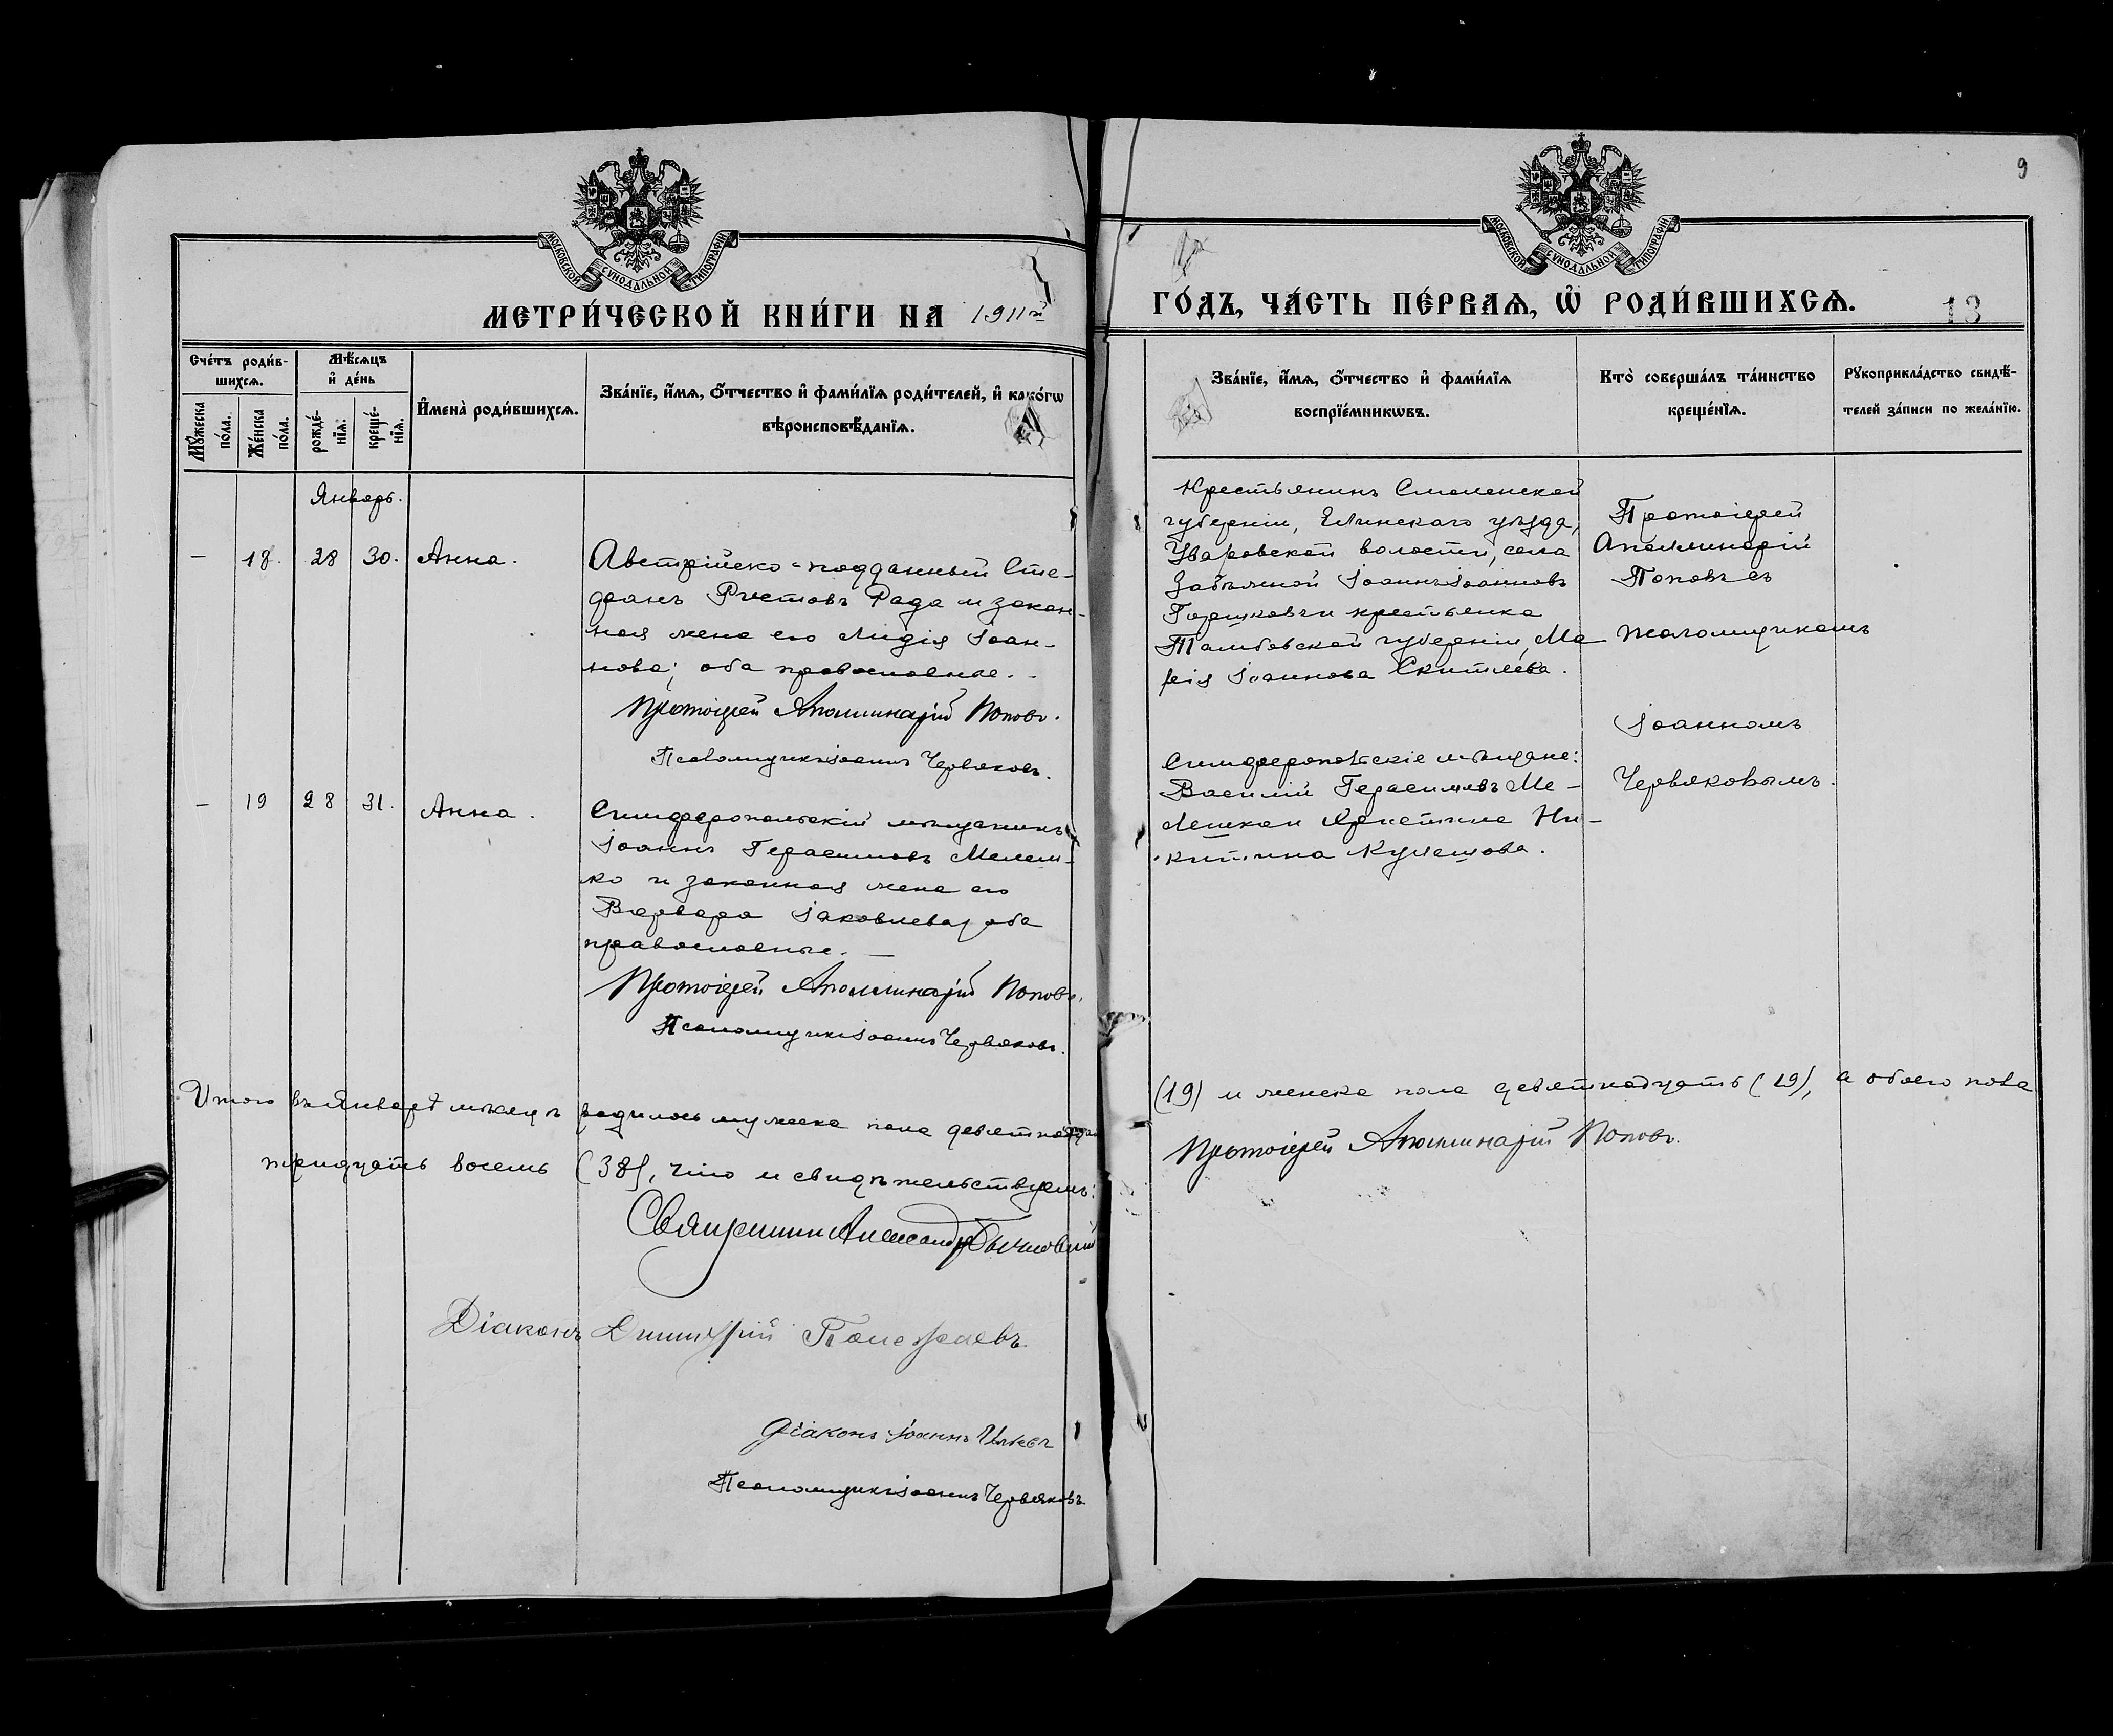 9
МОСКОВСКОЙ СѴНОДАЛЬНОЙ ТИПОГРАФІИ
МОСКОВСКОЙ СѴНОДАЛЬНОЙ ТИПОГРАФІИ
МЕТРИ́ЧЕСКОЙ КНИ́ГИ НА 1911й
ГО́ДЪ, ЧА́СТЬ ПЕ́РВАѦ, Ѡ҆ РОДИ́ВШИХСѦ.
13
Счéтъ роди́в-
шихсѧ.
Мꙋжеска
по́ла.
Же́нска
по́ла.
Мѣ́сѧцъ
и҆ де́нь
рожде́-
нїѧ:
креще́-
нїѧ.
И҆мена̀ роди́вшихсѧ.
Зва́нїе, и҆́мѧ, ѻ҆́тчество и҆ фами́лїѧ роди́телей, и҆ како́гѡ
вѣроисповѣ́данїѧ.
Зва́нїе, и҆́мѧ, ѻ҆́тчество и҆ фами́лїѧ
воспрїе́мникѡвъ.
Кто̀ соверша́лъ та́инство
креще́нїѧ.
Рꙋкоприкла́дство свидѣ́-
телей за́писи по жела́нїю.
Январь.
— 18. 28 30. Анна.
Австрійско-подданный Сте-
фанъ Рада и закон-
ная жена его Лидія Іоан-
нова; оба православные.
Протоіерей Аполлинарій Поповъ.
Псаломщикъ Іоаннъ Червяковъ.
Крестьянинъ Смоленской
губерніи, Ельнинскаго уѣзда,
Уваровской волости, села
Іоаннъ Іоанновъ
Горшковъ и крестьянка
Тамбовской губерніи, Ма
рія Іоаннова
Протоіерей
Аполлинарій
Поповъ съ
псаломщикомъ
Іоанномъ
Червяковымъ.
— 19 28 31. Анна.
Симферопольскій мѣщанинъ
Іоаннъ Герасимовъ Мелеш-
ко и законная жена его
Варвара Іаковлева, оба
православные. —
Протоіерей Аполлинарій Поповъ.
Псаломщикъ Іоаннъ Червяковъ.
Симферопольскіе мѣщане:
Василій Герасимовъ Ме-
лешко и Христина Ни-
китина Кулешова.
Итого въ Январѣ мѣсяцѣ родилось мужеска пола девятнадцать
(19) и женска пола девятнадцать (19), а обоего пола
тридцать восемь (38), что и свидѣтельствуемъ:
Протоіерей Аполлинарій Поповъ.
Священникъ Александръ
Діаконъ Димитрій
Діаконъ Іоаннъ
Псаломщикъ Іоаннъ Червяковъ